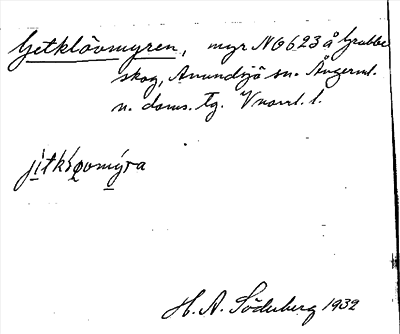 Getklövmyren, myr NG 623 å Grubbe
skog, Anundsjö sn. Ångerml.
n. doms. tg. Vnorrl. l.
jìtkl̀ǫvomýra
H. A. Söderberg 1932